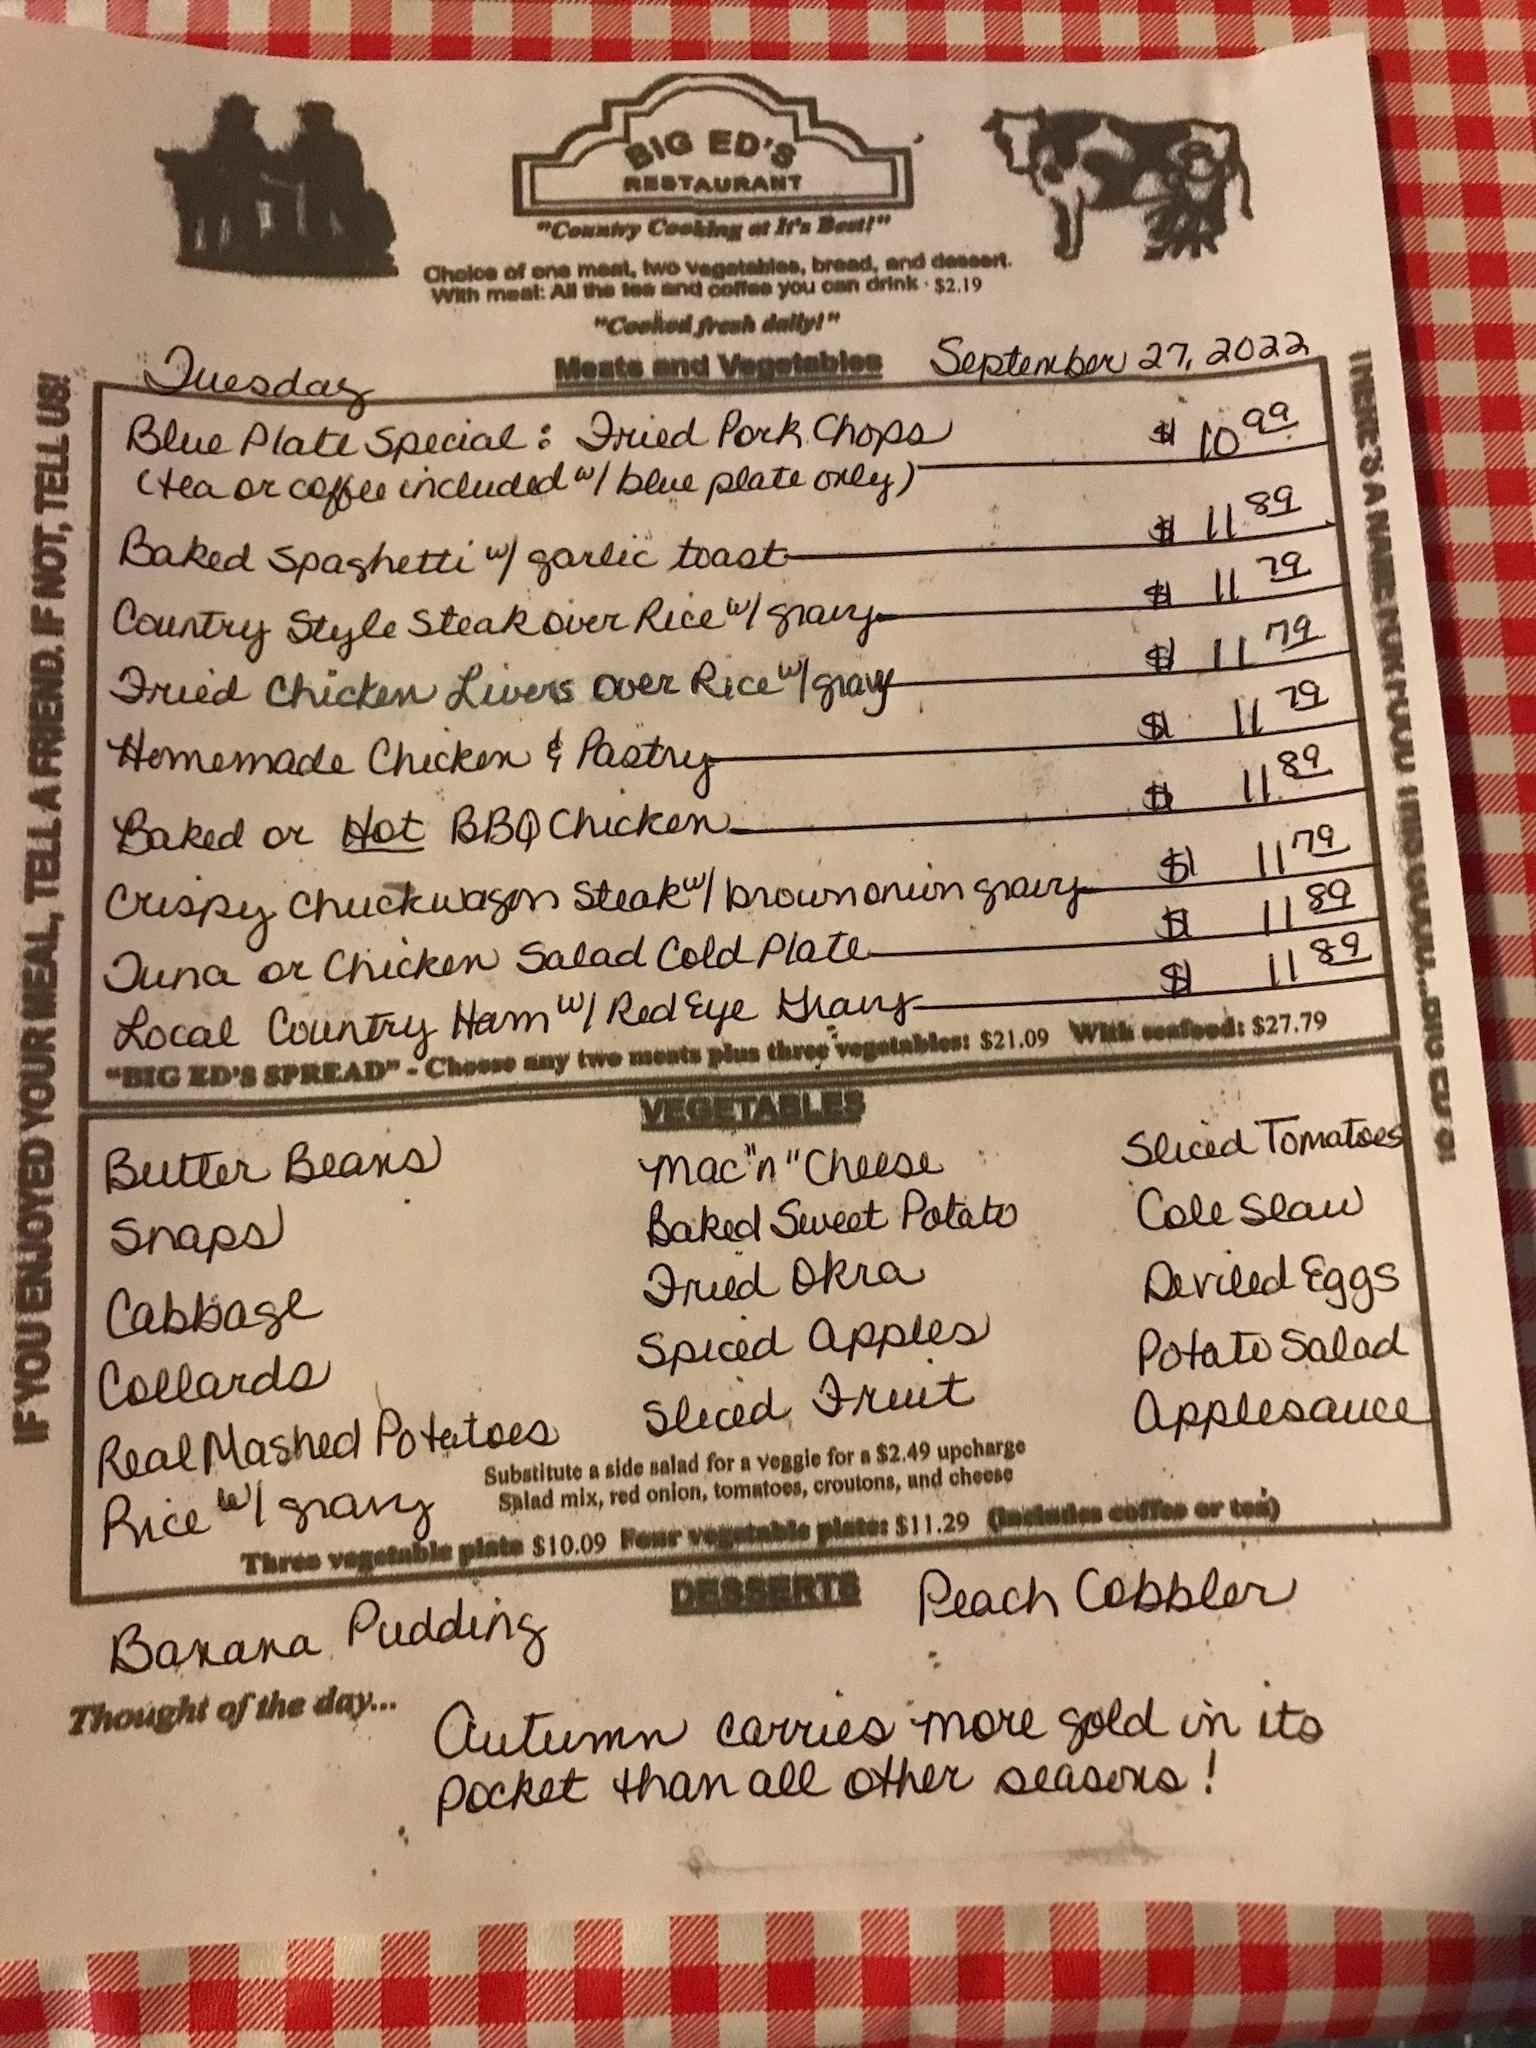 BIG ED'S
RESTAURANT
"Country Cooking at It's Best!"
Choice of one meat, two vegetables, bread, and dessert.
With meal: All the tea and coffee you can drink · $2.19
"Cooked fresh daily!"
Tuesday Meats and Vegetables September 27, 2022
Blue Plate Special: Fried Pork Chops $ 10.99
(tea or coffee included w/ blue plate only)
Baked Spaghetti w/ garlic toast $ 11 89
Country Style Steak over Rice w/ gravy $ 11 79
Fried Chicken Livers over Rice w/ gravy $ 11 79
Homemade Chicken & Pastry $ 11 79
Baked or Hot BBQ Chicken $ 11 89
Crispy Chuckwagon Steak w/ brown onion gravy $ 11 79
Tuna or Chicken Salad Cold Plate $ 11 89
Local Country Ham w/ Red Eye Gravy $ 11 89
"BIG ED'S SPREAD" - Choose any two meats plus three vegetables: $21.09 With seafood: $27.79
VEGETABLES
Butter Beans Mac "n" Cheese Sliced Tomatoes
Snaps Baked Sweet Potato Cole Slaw
Cabbage Fried Okra Deviled Eggs
Collards Spiced Apples Potato Salad
Real Mashed Potatoes Sliced Fruit Applesauce
Rice w/ gravy
Substitute a side salad for a veggie for a $2.49 upcharge
Salad mix, red onion, tomatoes, croutons, and cheese
Three vegetable plate $10.09 Four vegetable plate: $11.29 (includes coffee or tea)
DESSERTS
Banana Pudding Peach Cobbler
Thought of the day...
Autumn carries more gold in its
pocket than all other seasons!
IF YOU ENJOYED YOUR MEAL, TELL A FRIEND. IF NOT, TELL US!
THERE'S A NAME FOR FOOD THIS GOOD... BIG ED'S!